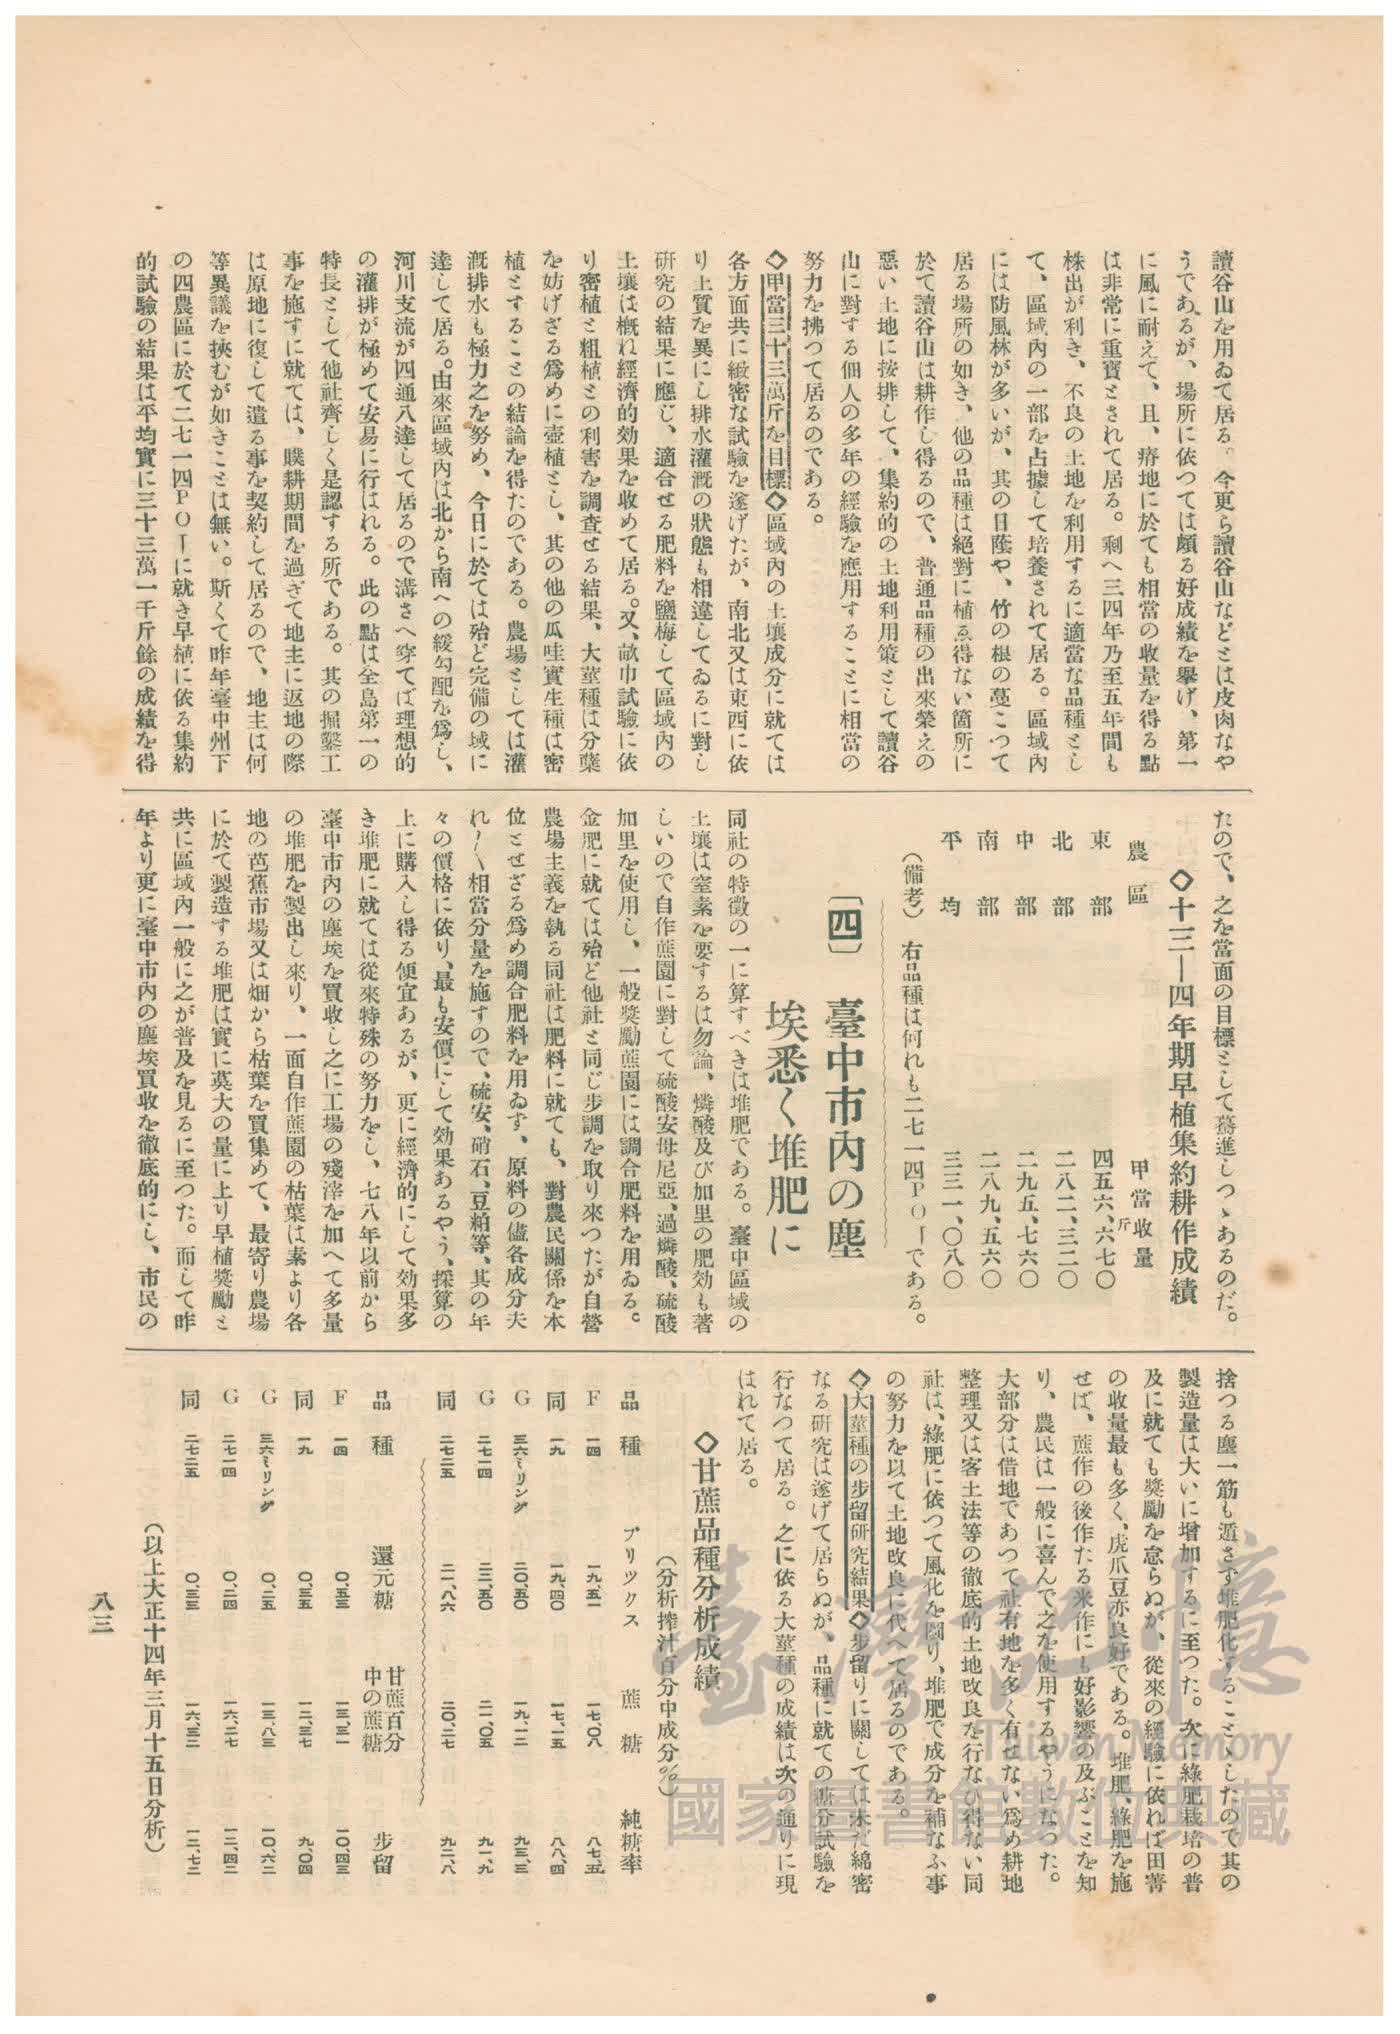 讀谷山を用ゐて居る。今更ら讀谷山などとは皮肉なや
うであるが、場所に依つては頗る好成績を擧げ、第一
に風に耐えて、且、瘠地に於ても相當の收量を得る點
は非常に重寶とされて居る。剩へ三四年乃至五年間も
株出が利き、不良の土地を利用するに適當な品種とし
て、區域內の一部を占據して培養されて居る。區域內
には防風林が多いが、其の日蔭や、竹の根の蔓こつて
居る場所の如き、他の品種は絕對に植ゑ得ない箇所に
於て讀谷山は耕作し得るので、普通品種の出來榮えの
惡い土地に按排して、集約的の土地利用策として讀谷
山に對する個人の多年の經驗を應用することに相當の
努力を拂つて居るのである。
◇甲當三十三萬斤を目標◇區域內の土壤成分に就ては
各方面共に緻密な試驗を遂げたが、南北又は東西に依
り土質を異にし排水灌漑の狀態も相違してゐるに對し
研究の結果に應じ、適合せる肥料を鹽梅して區域內の
土壤は槪ね經濟的効果を收めて居る。又、畝巾試驗に依
り密植と粗植との利害を調査せる結果、大莖種は分蘖
を妨げざる爲めに壼植とし、其の他の瓜哇實生種は密
植とすることの結論を得たのである。農場としては灌
漑排水も極力之を努め、今日に於ては殆ど完備の域に
達して居る。由來區域內は北から南への緩勾配を爲し、
河川支流が四通八達して居るので溝さへ穿てば理想的
の灌排が極めて安易に行はれる。此の點は全島第一の
特長として他社齊しく是認する所である。其の掘鑿工
事を施すに就ては、贌耕期間を過ぎて地主に返地の際
は原地に復して遣る事を契約して居るので、地主は何
等異議を挾むが如きことは無い。斯くて昨年臺中州下
の四農區に於て二七一四POJに就き早植に依る集約
的試驗の結果は平均實に三十三萬一千斤餘の成績を得
たので、之を當面の目標として驀進しつゝあるのだ。
◇十三—四年期早植集約耕作成績
農區 甲當收量
斤
東部 四五六、六七〇
北部 二八二、三二〇
中部 二九五、七六〇
南部 二八九、五六〇
平均 三三一、〇八〇
（備考） 右品種は何れも二七一四POJである。
〔四〕 臺中市內の塵
埃悉く堆肥に
同社の特徵の一に算すべきは堆肥である。臺中區域の
土壤は窒素を要するは勿論、燐酸及び加里の肥効も著
しいので自作蔗園に對して硫酸安母尼亞、過燐酸、硫酸
加里を使用し、一般獎勵蔗園には調合肥料を用ゐる。
金肥に就ては殆ど他社と同じ步調を取り來つたが自營
農場主義を執る同社は肥料に就ても、對農民關係を本
位とせざる爲め調合肥料を用ゐず、原料の儘各成分夫
れ〱相當分量を施すので、硫安、硝石、豆粕等、其の年
々の價格に依り、最も安價にして効果あるやう、採算の
上に購入し得る便宜あるが、更に經濟的にして効果多
き堆肥に就ては從來特殊の努力をし、七八年以前から
臺中市內の塵埃を買收し之に工場の殘滓を加へて多量
の堆肥を製出し來り、一面自作蔗園の枯葉は素より各
地の芭蕉市場又は畑から枯葉を買集めて、最寄り農場
に於て製造する堆肥は實に莫大の量に上り早植獎勵と
共に區域內一般に之が普及を見るに至つた。而して昨
年より更に臺中市內の塵埃買收を徹底的にし、市民の
捨つる塵一筋も遁さず堆肥化することゝしたので其の
製造量は大いに增加するに至つた。次に綠肥栽培の普
及に就ても獎勵を怠らぬが、從來の經驗に依れば田菁
の收量最も多く、虎爪豆亦良好である。堆肥、綠肥を施
せば、蔗作の後作たる米作にも好影響の及ぶことを知
り、農民は一般に喜んで之を使用するやうになつた。
大部分は借地であつて社有地を多く有せない爲め耕地
整理又は客土法等の徹底的土地改良を行なひ得ない同
社は、綠肥に依つて風化を圖り、堆肥で成分を補なふ事
の努力を以て土地改良に代へて居るのである。
◇大莖種の步留硏究結果◇步留りに關しては未だ綿密
なる硏究は遂げて居らぬが、品種に就ての糖分試驗を
行なつて居る。之に依る大莖種の成績は次の通りに現
はれて居る。
◇甘蔗品種分析成績
（分析搾汁百分中成分％）
品種 ブリツクス 蔗糖 純糖率
F 一四 一九、五一 一七、〇八 八七、五
同 一九 一九、四〇 一七、一五 八八、四
G 三六ミリング 二〇、五〇 一九、一二 九三、三
G 二七一四 二二、五〇 二一、〇五 九一、九
同 二七二五 二一、八六 二〇、二七 九二、八
品種 還元糖 甘蔗百分中の蔗糖 步留
F 一四 〇、五三 一三、三一 一〇、四三
同 一九 〇、三五 一二、三七 九、〇四
G 三六ミリング 〇、二五 一三、八三 一〇、六二
G 二七一四 〇、二四 一六、二七 一二、四二
同 二七二五 〇、三三 一六、三二 一二、七二
（以上大正十四年三月十五日分析）
八三
臺灣記憶
Taiwan Memory
國家圖書館數位典藏